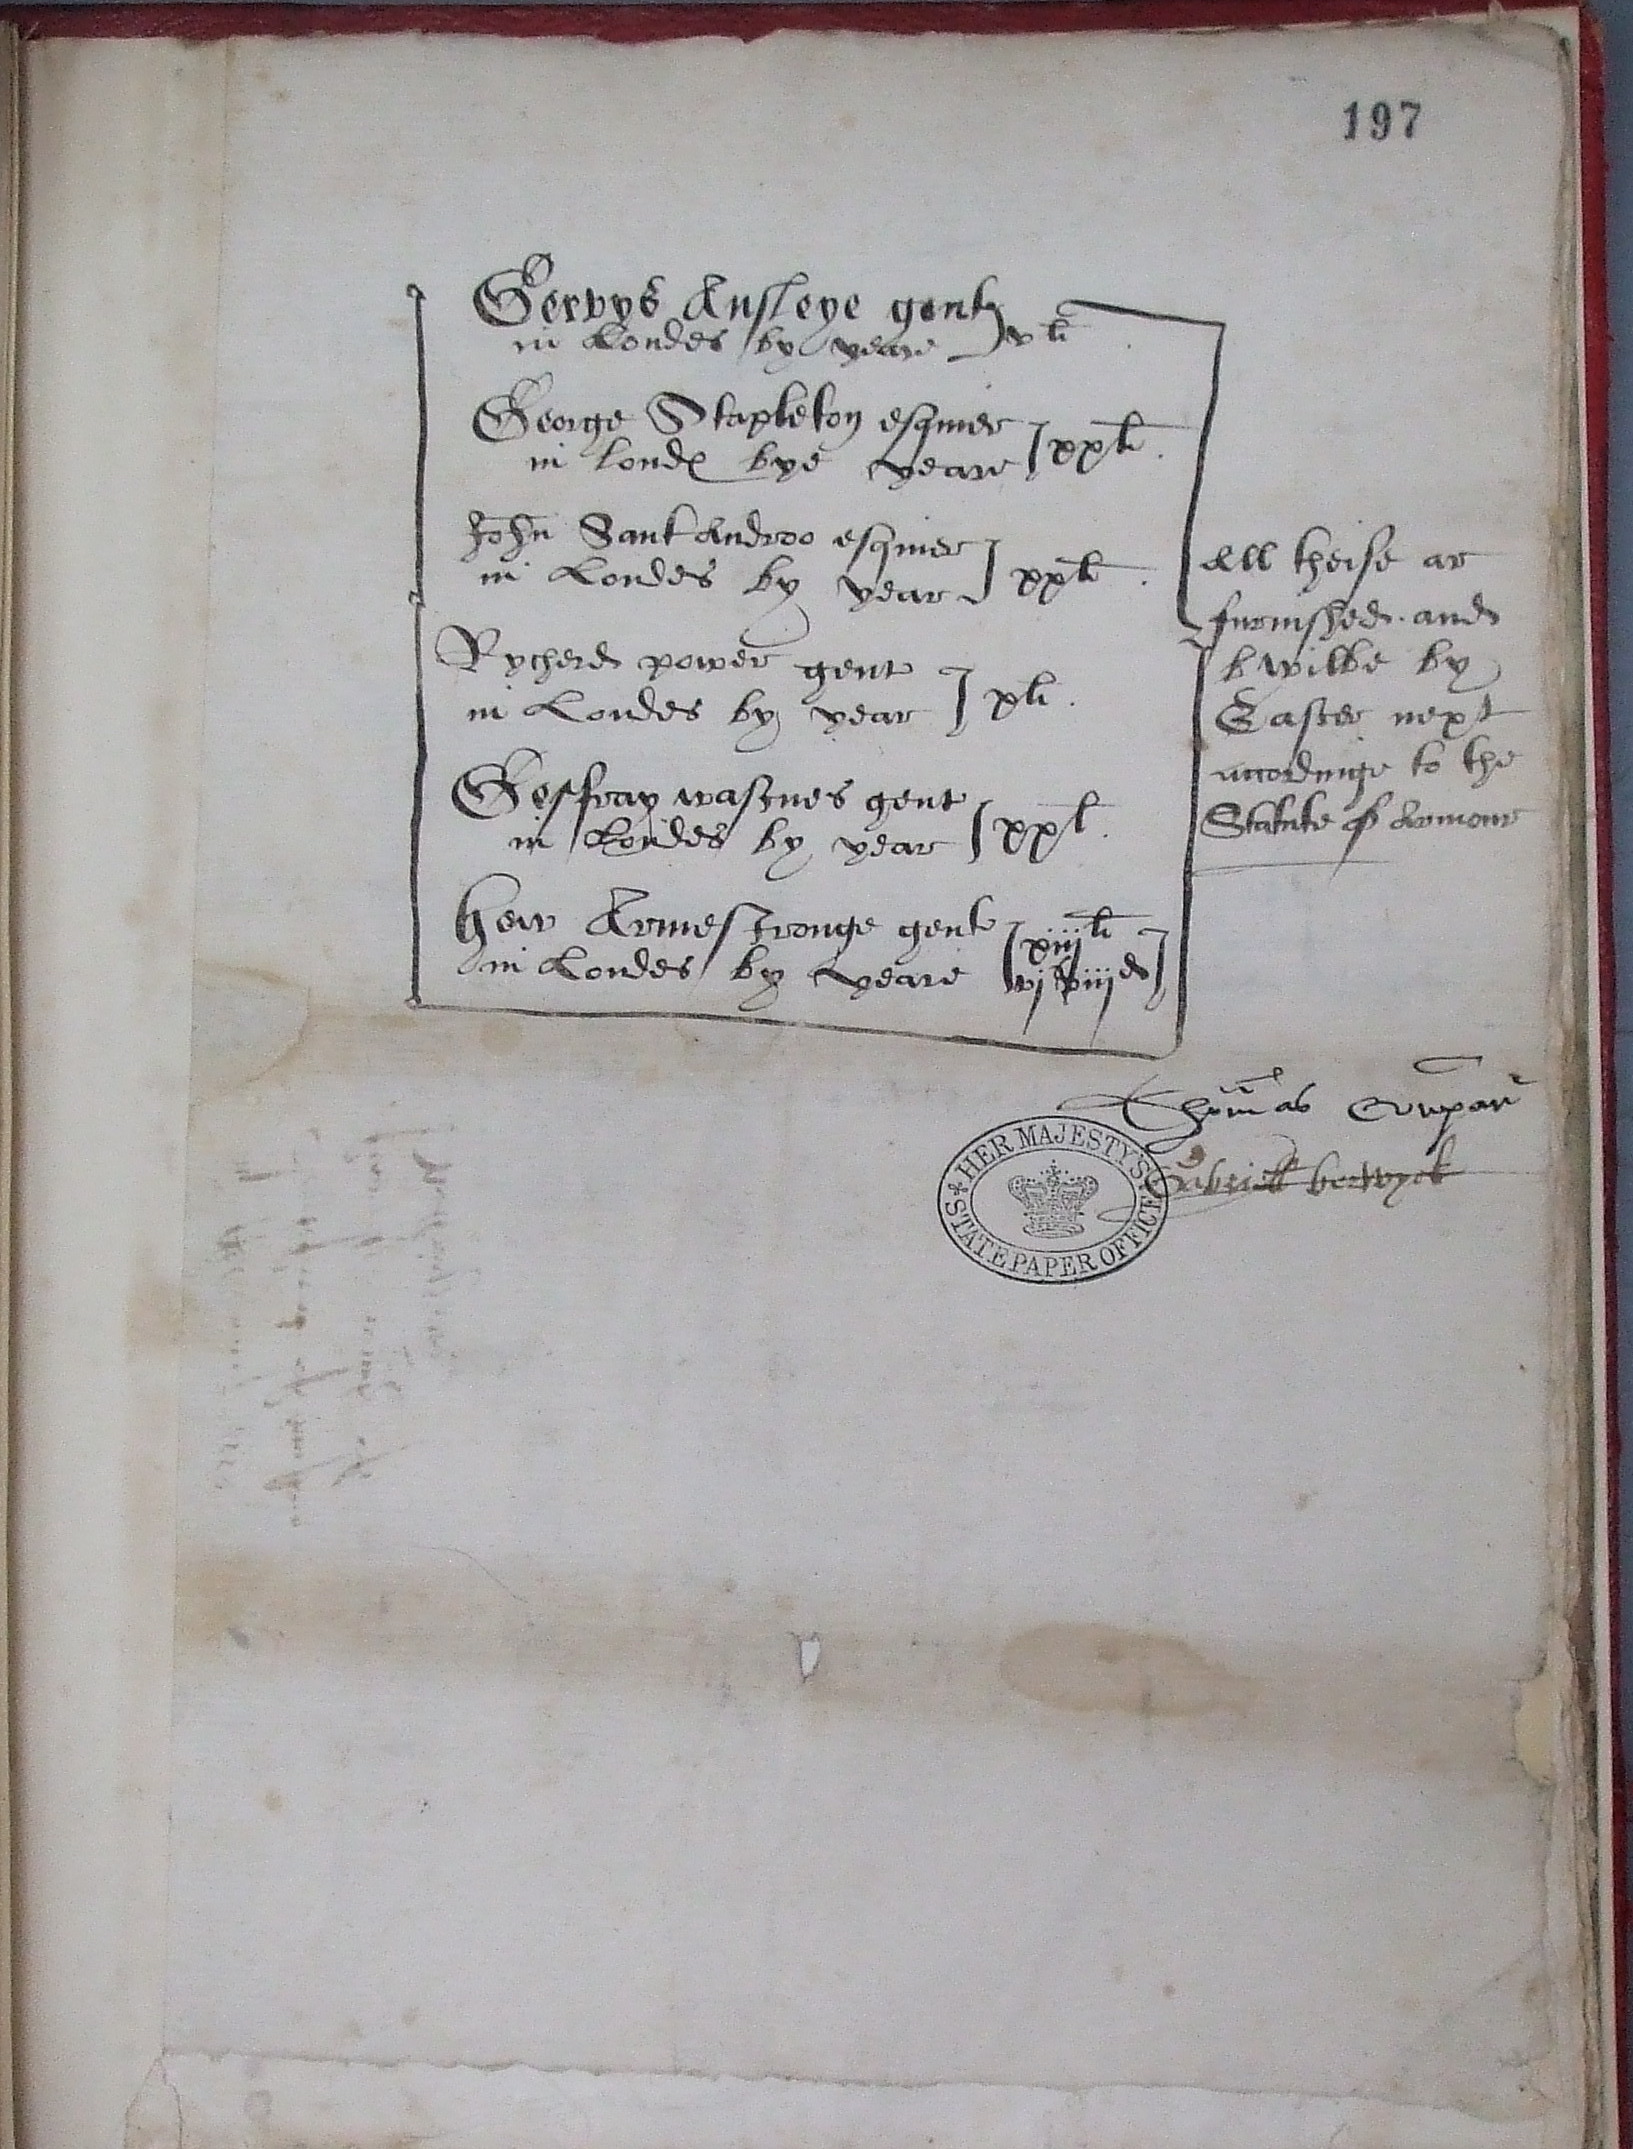 197
Gervys Ansleye gent
in Londes by yeare
v li
George Stapleton esquier
in lond bye yeare
xx li
John Sant Androo esquier
in Londes by year
xx li
Rycherd power gent
in Londes by year
x li
Geffray wastnes gent
in Londes by year
xx l
Hew Armestronge gent
in Londes by yeare
xiij li
vj s viij d
All theise ar
furnished and
wilbe by
Easter next
accordinge to the
Statute of Armour
Thomas
Gabriell berwyck
HER MAJESTY'S
STATE PAPER OFFICE